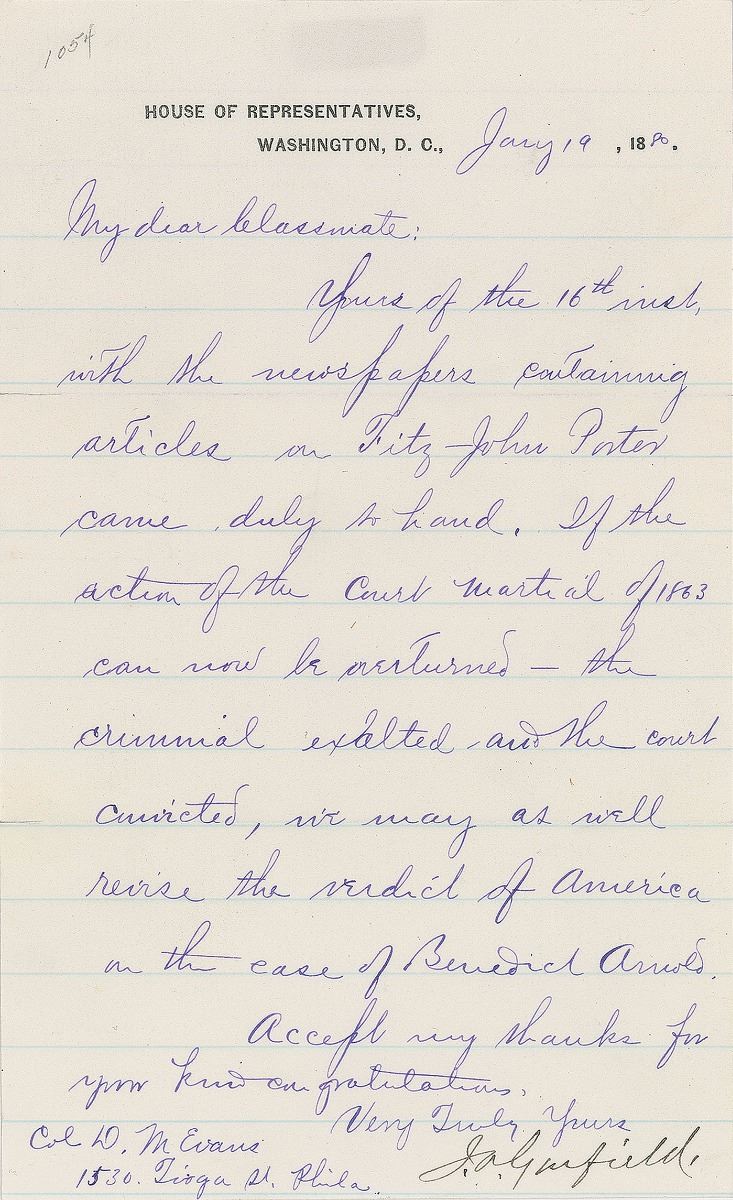 1054
HOUSE OF REPRESENTATIVES,
WASHINGTON, D. C., Jany 19, 1880.
My dear Classmate:
Yours of the 16th inst,
with the newspapers containing
articles on Fitz-John Porter
came duly to hand. If the
action of the Court Martial of 1863
can now be overturned — the
criminal exalted and the court
convicted, we may as well
revise the verdict of America
on the case of Benedict Arnold.
Accept my thanks for
your kind congratulations.
Very Truly Yours
J.A. Garfield.
Col D. M Evans
1530. Tioga St. Phila.